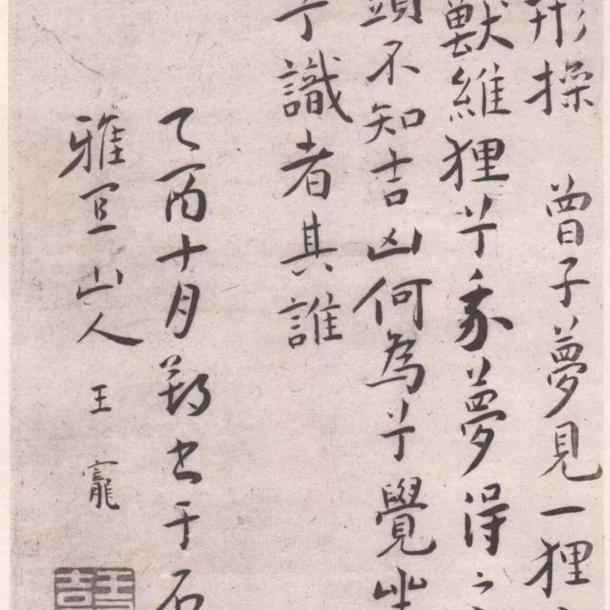 形操　曾子夢見一狸
獸維狸兮我夢得之
頭不知吉凶何為兮覺坐
兮識者其誰
乙酉十月朔書于石
雅宜山人王寵